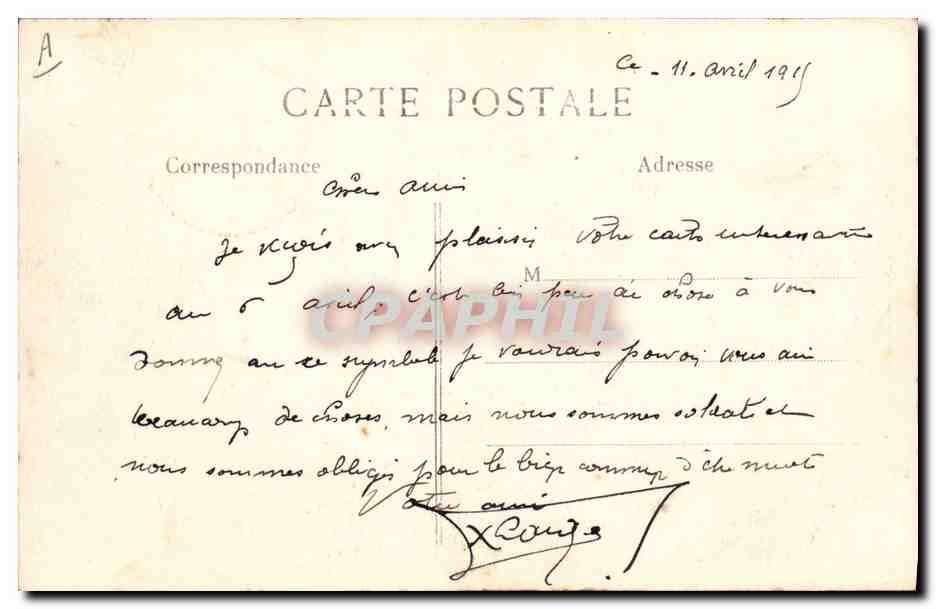 A
Ce - 11. avril 1915
CARTE POSTALE
Correspondance
Adresse
Cher ami
Je reçois avec plaisir votre carte interessante
M
du 6 avril, c'est bien peu de chose à vous
CPAPHIL
je voudrais pouvoir vous dire
beaucoup de choses, mais nous sommes soldats et
nous sommes obligés pour le bien commun d'être muets
Votre ami